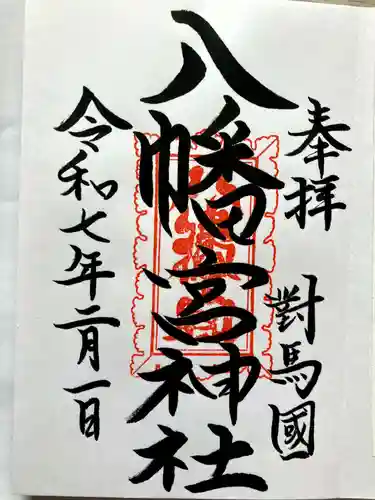 奉拝 對馬國
八幡宮神社
令和七年二月一日